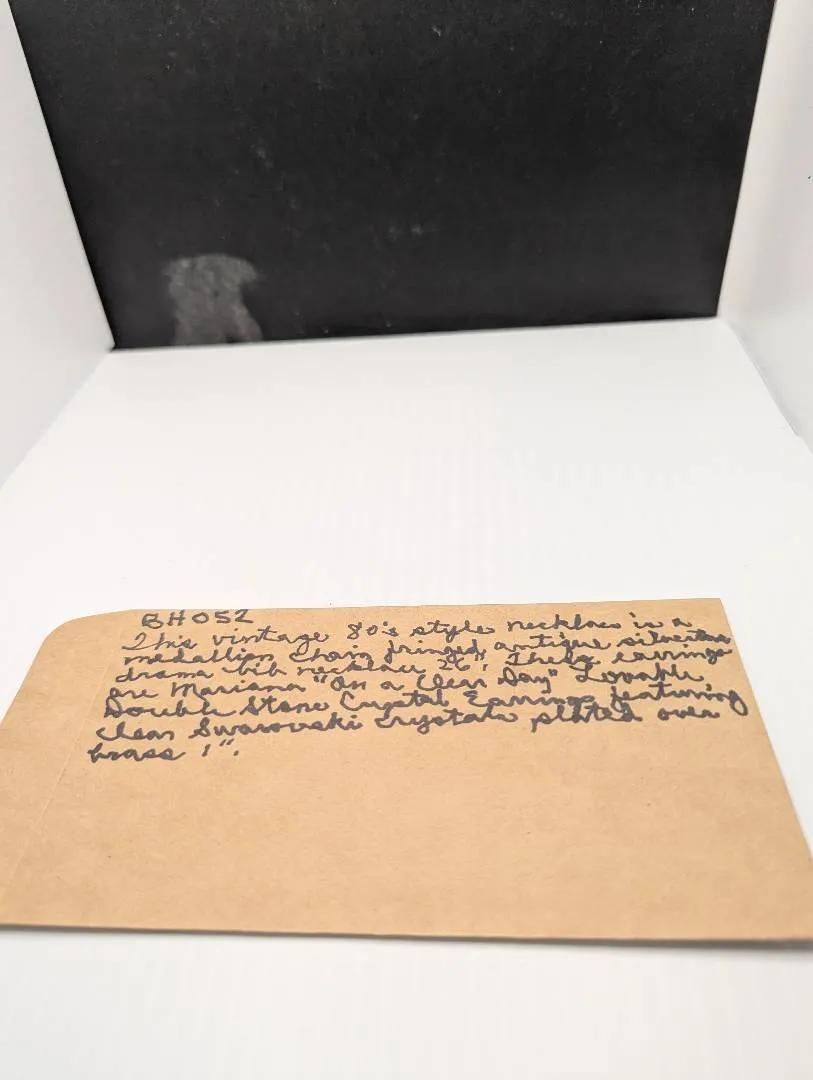 BH052
This vintage 80's style necklace is a
medallion chain fringed, antique silvertone
drama bib necklace 26". These earrings
are Mariana "On a Clear Day" Lovable
Double Stone Crystal Earrings featuring
clear Swarovski crystals plated over
brass 1".